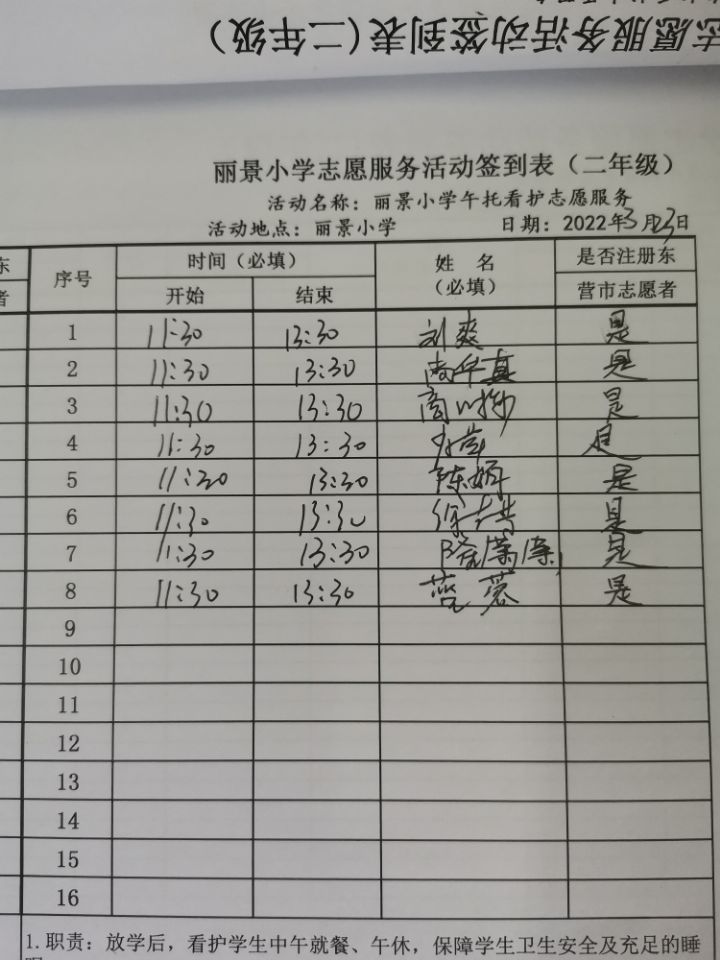 志愿服务活动签到表(二年级)
丽景小学志愿服务活动签到表（二年级）
活动名称：丽景小学午托看护志愿服务
活动地点：丽景小学 日期：2022年3月23日
东
者
序号 时间（必填） 姓 名 是否注册东
开始 结束 （必填） 营市志愿者
1 11:30 13:30 刘爽 是
2 11:30 13:30 是
3 11:30 13:30 是
4 11:30 13:30 是
5 11:30 13:30 陈娟 是
6 11:30 13:30 是
7 11:30 13:30 是
8 11:30 13:30 是
9
10
11
12
13
14
15
16
1. 职责：放学后，看护学生中午就餐、午休，保障学生卫生安全及充足的睡